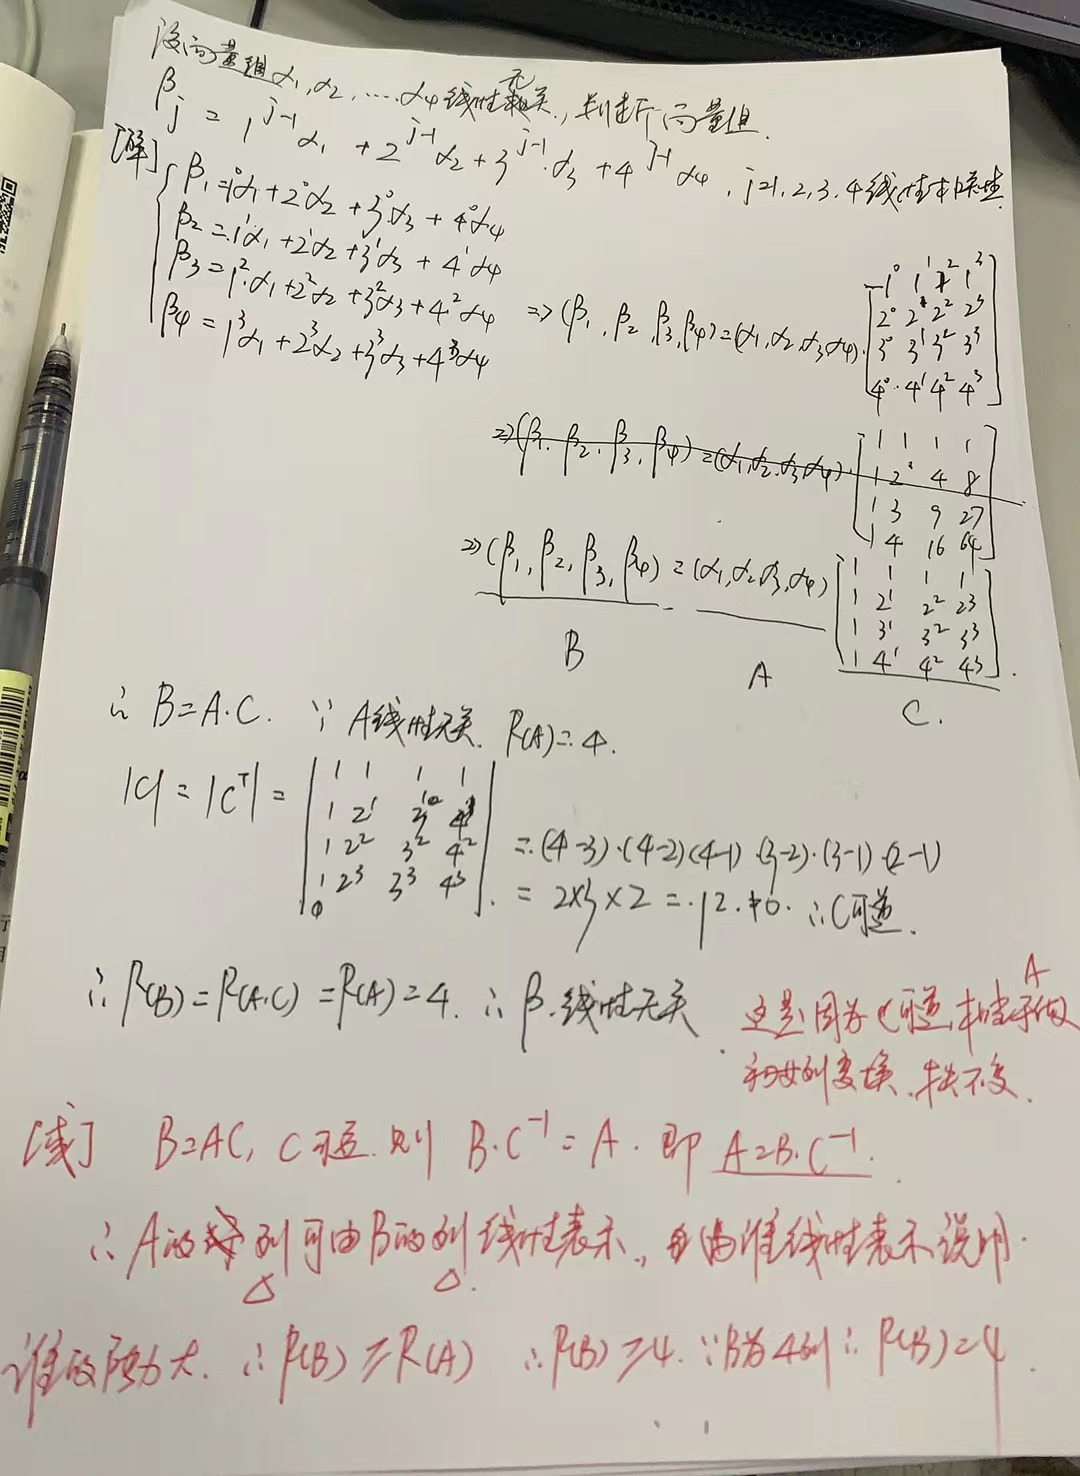 设向量组α₁,α₂,....α₄线性无关,判断向量组
βj = 1^{j-1}α₁ + 2^{j-1}α₂ + 3^{j-1}·α₃ + 4^{j-1}α₄ , j=1,2,3,4线性相关性.
[解] β₁=1⁰α₁+2⁰α₂+3⁰α₃+4⁰α₄
β₂=1¹α₁+2¹α₂+3¹α₃+4¹α₄
β₃=1²·α₁+2²α₂+3²α₃+4²α₄
β₄=1³α₁+2³α₂+3³α₃+4³α₄
⇒(β₁,β₂,β₃,β₄)=(α₁,α₂,α₃,α₄)·
1⁰ 1¹ 1² 1³
2⁰ 2¹ 2² 2³
3⁰ 3¹ 3² 3³
4⁰ 4¹ 4² 4³
⇒(β₁,β₂,β₃,β₄)=(α₁,α₂,α₃,α₄)·
1 1 1 1
1 2 4 8
1 3 9 27
1 4 16 64
⇒(β₁,β₂,β₃,β₄)=(α₁,α₂,α₃,α₄)
1 1 1 1
1 2¹ 2² 2³
1 3¹ 3² 3³
1 4¹ 4² 4³
B A C.
∴ B=A·C. ∵ A线性无关. R(A)=4.
|C|=|Cᵀ|=
1 1 1 1
1 2¹ 3¹ 4¹
1 2² 3² 4²
1 2³ 3³ 4³
=(4-3)·(4-2)(4-1)·(3-2)·(3-1)·(2-1)
=2×3×2=12≠0. ∴C可逆.
∴ R(B)=R(A·C)=R(A)=4. ∴ β线性无关
这是因为C可逆,相当于做A
初等列变换.秩不变.
[或] B=AC, C可逆.则 B·C⁻¹=A. 即 A=B·C⁻¹.
∴A的列可由B的列线性表示, 由谁线性表示说明
谁的 大. ∴R(B)≥R(A) ∴R(B)≥4. ∵B为4列∴R(B)=4.